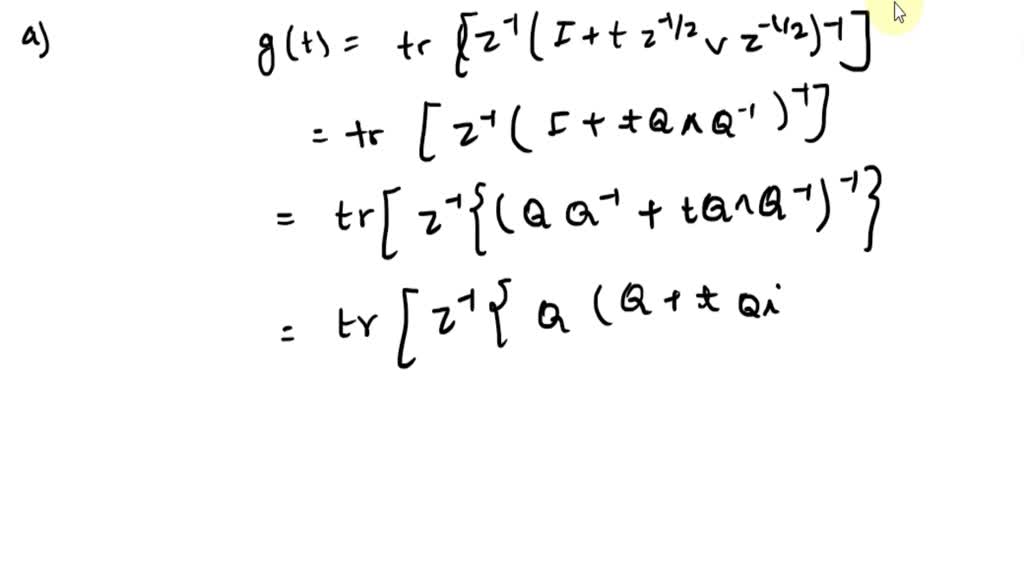 a) g(t) = tr [z⁻¹(I + t z⁻¹/² v z⁻¹/²)⁻¹]
= tr [z⁻¹(I + tQΛQ⁻¹)⁻¹]
= tr[z⁻¹{(QQ⁻¹ + tQΛQ⁻¹)⁻¹}
= tr[z⁻¹{Q(Q + t Qi